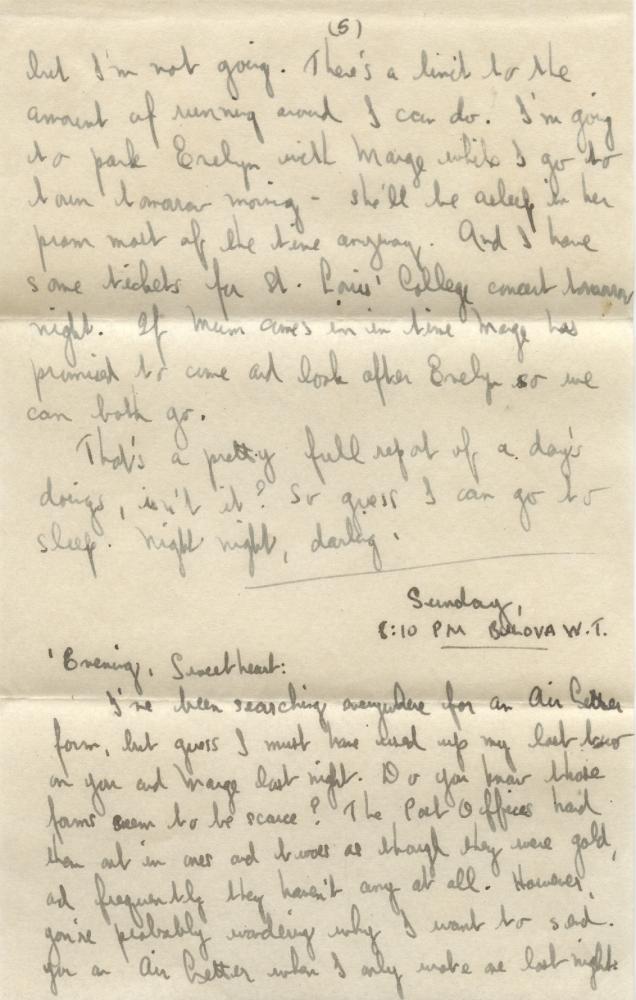 (5)
but I'm not going. There's a limit to the
amount of running around I can do. I'm going
to park Evelyn with Marge while I go to
town tomorrow morning - she'll be asleep in her
pram most of the time anyway. And I have
some tickets for St. Louis' College concert tomorrow
night. If Mum comes in in time Marge has
promised to come and look after Evelyn so we
can both go.
That's a pretty full report of a day's
doings, isn't it? So guess I can go to
sleep. Night night, darling.
Sunday,
8:10 PM BULOVA W.T.
'Evening, Sweetheart:
I've been searching everywhere for an Air Letter
form, but guess I must have used up my last two
on you and Marge last night. Do you know those
forms seem to be scarce? The Post Offices hand
them out in ones and twos as though they were gold,
and frequently they haven't any at all. However,
you're probably wondering why I want to send
you an Air Letter when I only wrote one last night.